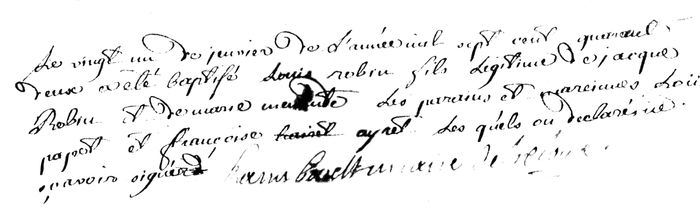 Le vingt un de janvier de l'année mil sept cent quarant
deux a été baptisé Louis robin fils Legitime de jacque
Robin et de marie Les parains et mareinnes Loui
papot et françoise ayret Les quels on declarés ne
sçavoir signer